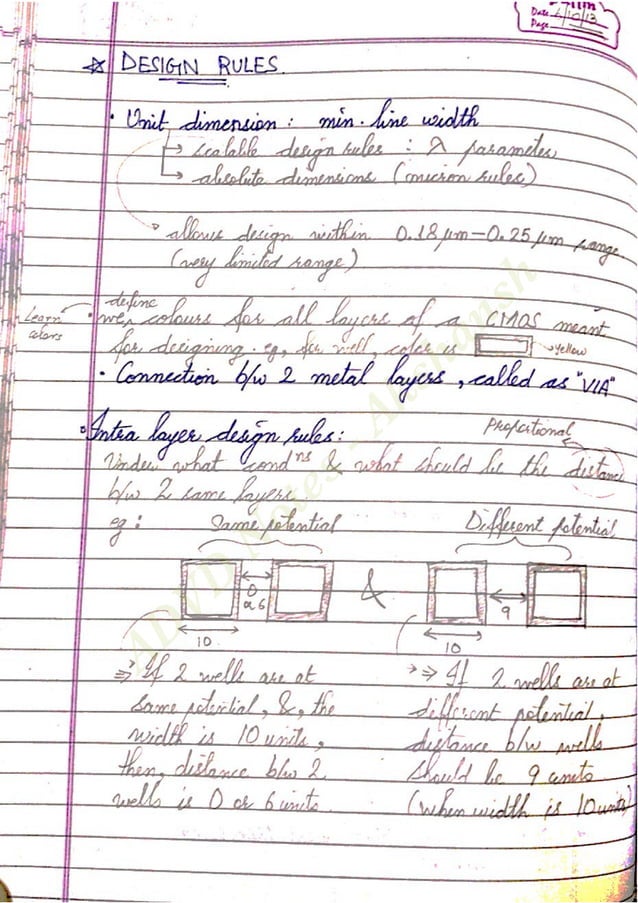 Date 4/10/13
Page
☆ DESIGN RULES.
• Unit dimension : min. line width
→ scalable design rules : λ parameter
→ absolute dimensions (micron rules)
→ allows design within 0.18 μm – 0.25 μm range.
(very limited range)
define
Learn colors
• we, colours for all layers of a CMOS meant
for designing. eg, for well, color is → yellow
• Connection b/w 2 metal layers, called as "VIA"
Proportional
• Intra layer design rules :
Under what condns & what should be the distance
b/w 2 same layers
eg : Same potential Different potential
0 or 6 & 9
10 10
⇒ If 2 wells are at
same potential, &, the
width is 10 units,
then, distance b/w 2
wells is 0 or 6 units.
⇒ If 2 wells are at
different potential,
distance b/w wells
should be 9 units
(when width is 10 units)
ADVD Notes - Akshansh